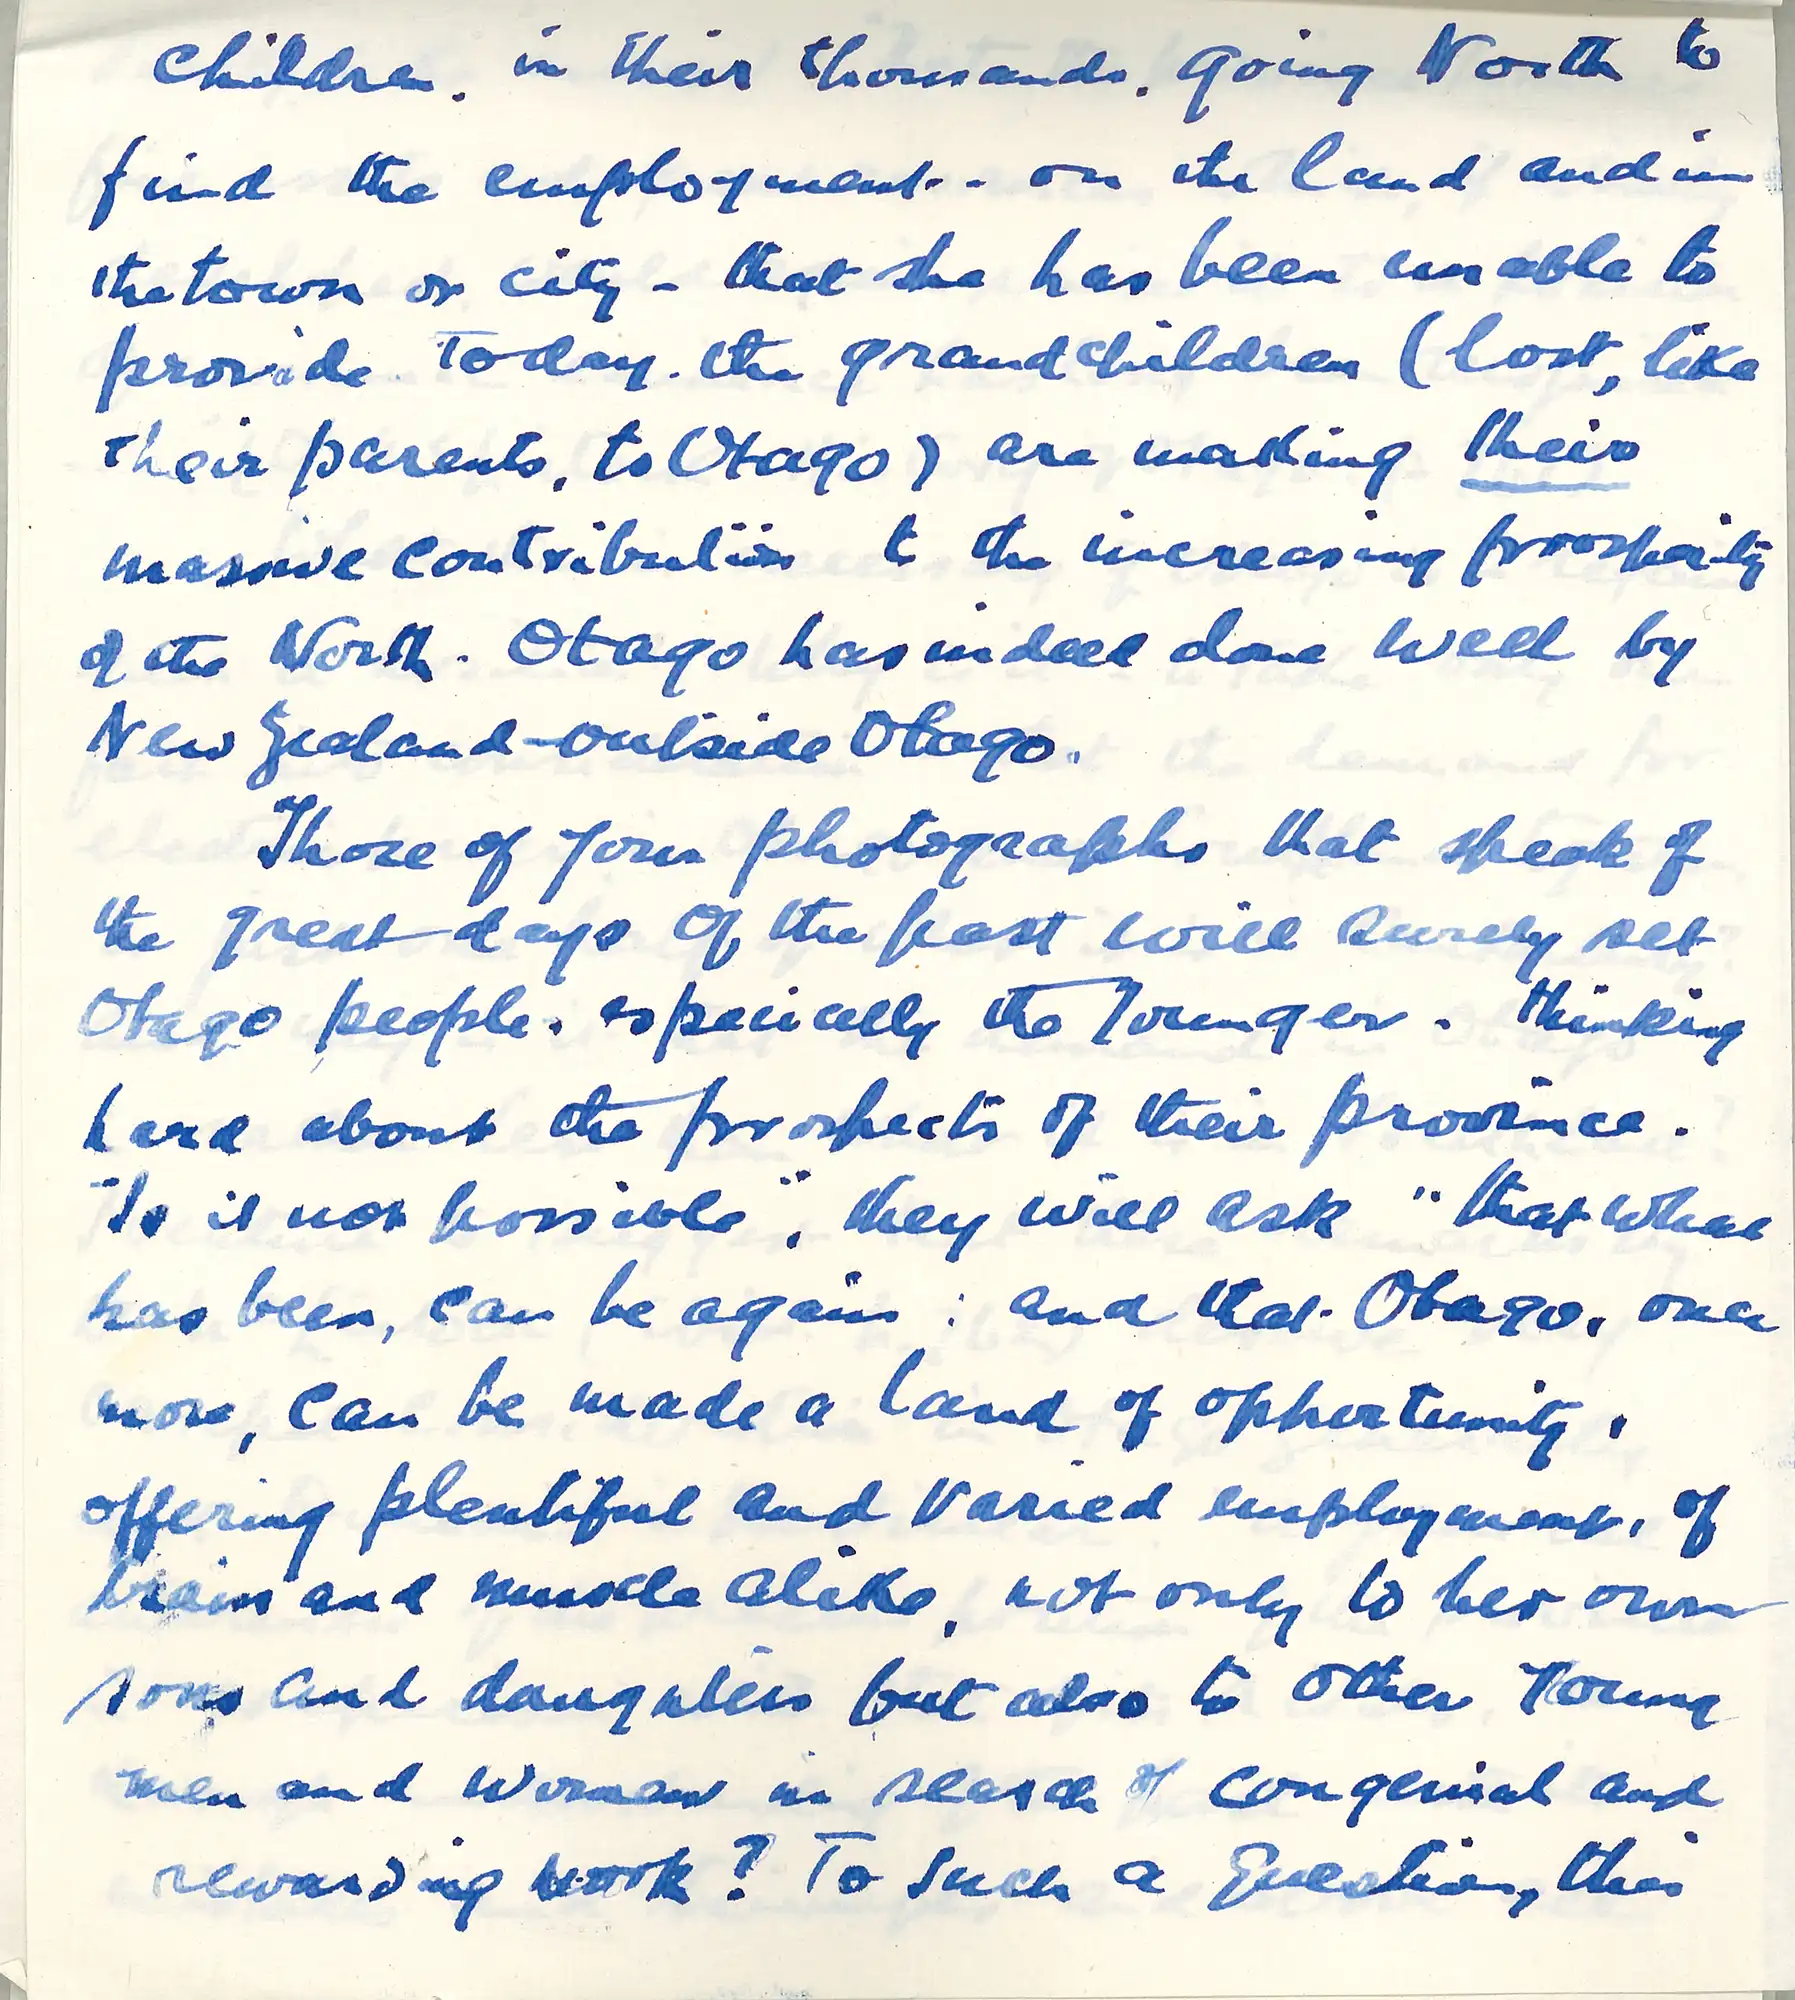 children, in their thousands, going North to
find the employment - on the land and in
the town or city - that she has been unable to
provide. Today, the grandchildren (lost, like
their parents, to Otago) are making their
massive contribution to the increasing prosperity
of the North. Otago has indeed done well by
New Zealand-outside Otago.
Those of your photographs that speak of
the great days of the past will surely set
Otago people, especially the younger, thinking
hard about the prospects of their province.
"Is it not possible", they will ask "that what
has been, can be again; and that Otago, once
more, can be made a land of opportunity,
offering plentiful and varied employment, of
brain and muscle alike, not only to her own
sons and daughters but also to other young
men and women in search of congenial and
rewarding work? To such a question, this